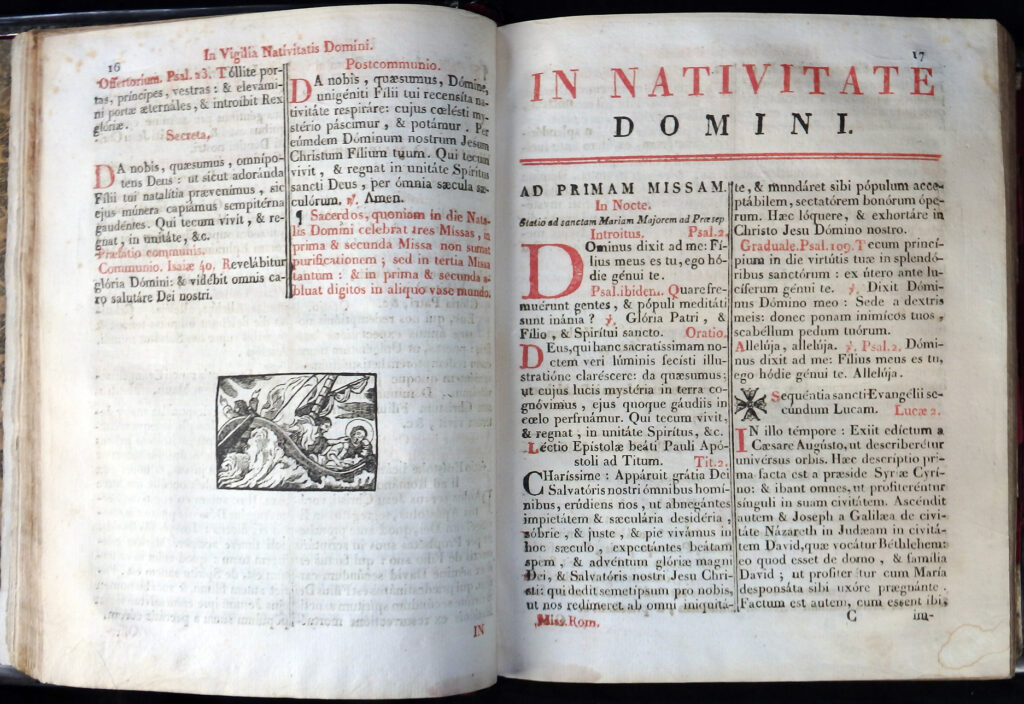 16
In Vigilia Nativitatis Domini.
Offertorium. Psal. 23. Tóllite por-
tas, príncipes, vestras: & elevámi-
ni portæ æternáles, & introíbit Rex
glóriæ.
Secreta,
DA nobis, quæsumus, omnípo-
tens Deus: ut sicut adoránda
Fílii tui natalítia prævenímus, sic
ejus múnera capiámus sempitérna
gaudéntes. Qui tecum vivit, & re-
gnat, in unitáte, &c.
Præfatio communis.
Communio. Isaiæ 40. Revelábitur
glória Dómini: & vidébit omnis ca-
ro salutáre Dei nostri.
Postcommunio.
DA nobis, quæsumus, Dómine,
unigéniti Fílii tui recensíta na-
tivitáte respiráre: cujus cœlésti my-
stério páscimur, & potámur. Per
eúmdem Dóminum nostrum Jesum
Christum Fílium tuum. Qui tecum
vivit, & regnat in unitáte Spíritus
sancti Deus, per ómnia sæcula sæ-
culórum. ℟. Amen.
¶ Sacerdos, quoniam in die Nata-
lis Domini celebrat tres Missas, in
prima & secunda Missa non sumat
purificationem; sed in tertia Missa
tantum: & in prima & secunda a-
bluat digitos in aliquo vase mundo.
IN
17
IN NATIVITATE
DOMINI.
AD PRIMAM MISSAM.
In Nocte.
Statio ad sanctam Mariam Majorem ad Præsep
Introitus. Psal. 2.
DOminus dixit ad me: Fí-
lius meus es tu, ego hó-
die génui te.
Psal. ibidem. Quare fre-
muérunt gentes, & pópuli meditáti
sunt inánia? ℣. Glória Patri, &
Fílio, & Spirítui sancto. Oratio.
DEus, qui hanc sacratíssimam no-
ctem veri lúminis fecísti illu-
stratióne claréscere: da quæsumus;
ut cujus lucis mystéria in terra co-
gnóvimus, ejus quoque gáudiis in
cœlo perfruámur. Qui tecum vivit,
& regnat, in unitáte Spíritus, &c.
Léctio Epístolæ beáti Pauli Apó-
stoli ad Titum. Tit. 2.
CHaríssime: Appáruit grátia Dei
Salvatóris nostri ómnibus homí-
nibus, erúdiens nos, ut abnegántes
impietátem & sæculária desidéria,
sóbrie, & juste, & pie vivámus in
hoc sæculo, expectántes beátam
spem, & advéntum glóriæ magni
Dei, & Salvatóris nostri Jesu Chri-
sti: qui dedit semetípsum pro nobis,
ut nos redímeret ab omni iniquitá-
te, & mundáret sibi pópulum acce-
ptábilem, sectatórem bonórum óp-
rum. Hæc lóquere, & exhortáre in
Christo Jesu Dómino nostro.
Graduale. Psal. 109. Tecum princí-
pium in die virtútis tuæ in splendó-
ribus sanctórum: ex útero ante lu-
cíferum génui te. ℣. Dixit Dómi-
nus Dómino meo: Sede a dextris
meis: donec ponam inimícos tuos,
scabéllum pedum tuórum.
Allelúja, allelúja. ℣. Psal. 2. Dómi-
nus dixit ad me: Fílius meus es tu,
ego hódie génui te. Allelúja.
Sequéntia sancti Evangélii se-
cúndum Lucam. Lucæ 2.
IN illo témpore: Exiit edíctum a
Cæsare Augústo, ut describerétur
univérsus orbis. Hæc descriptio pri-
ma facta est a præside Syriæ Cyrí-
no: & ibant omnes, ut profiteréntur
sínguli in suam civitátem. Ascéndit
autem & Joseph a Galilæa de civi-
táte Názareth in Judæam in civitá-
tem David, quæ vocátur Béthlehem:
eo quod esset de domo, & família
David; ut profiterétur cum María
desponsáta sibi uxóre prægnánte.
Factum est autem, cum essent ibi,
Miss. Rom.
C
im-